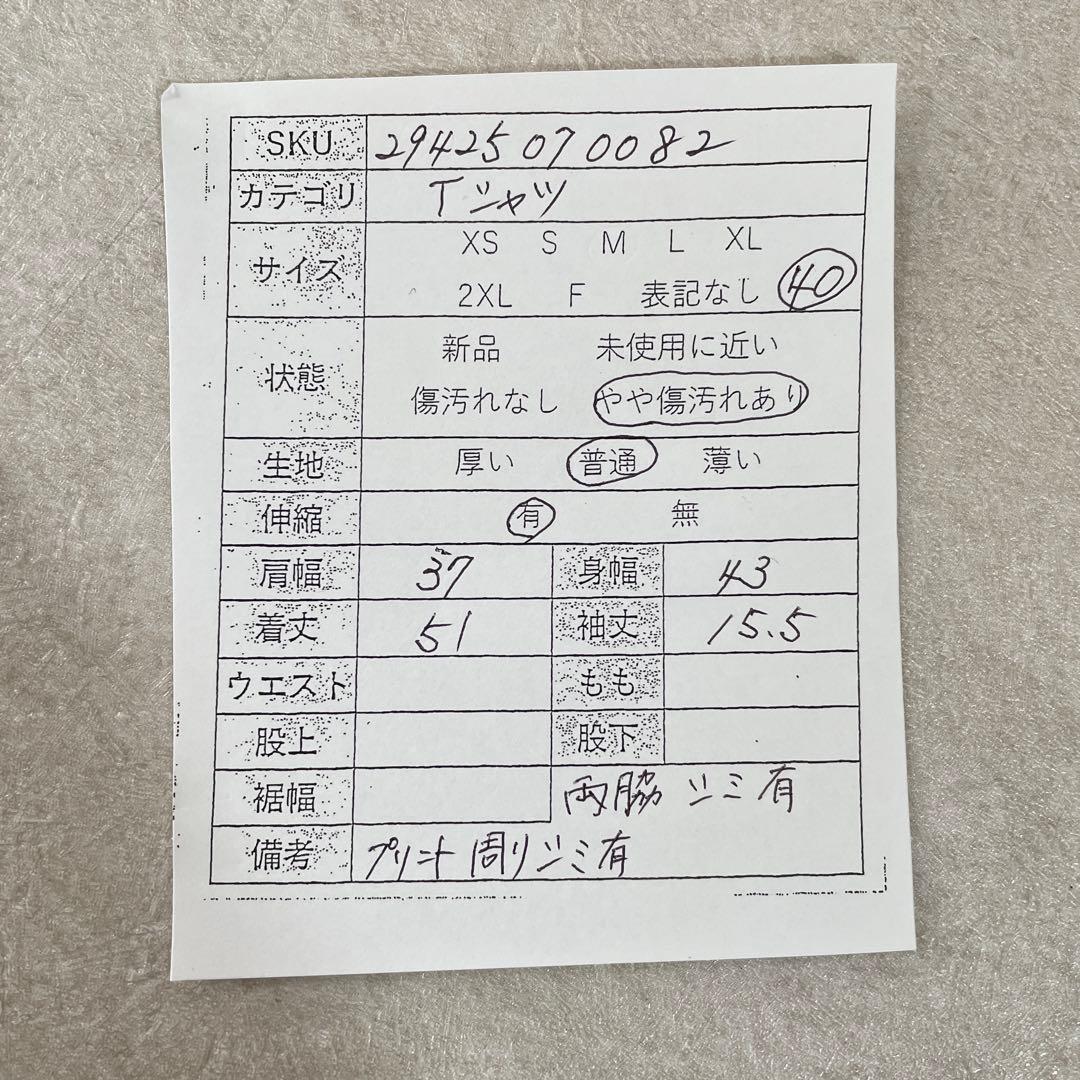 SKU 29425070082
カテゴリ Tシャツ
XS S M L XL
サイズ
2XL F 表記なし 40
新品 未使用に近い
状態
傷汚れなし やや傷汚れあり
生地 厚い 普通 薄い
伸縮 有 無
肩幅 37 身幅 43
着丈 51 袖丈 15.5
ウエスト もも
股上 股下
裾幅 両脇 シミ有
備考 プリント周りシミ有